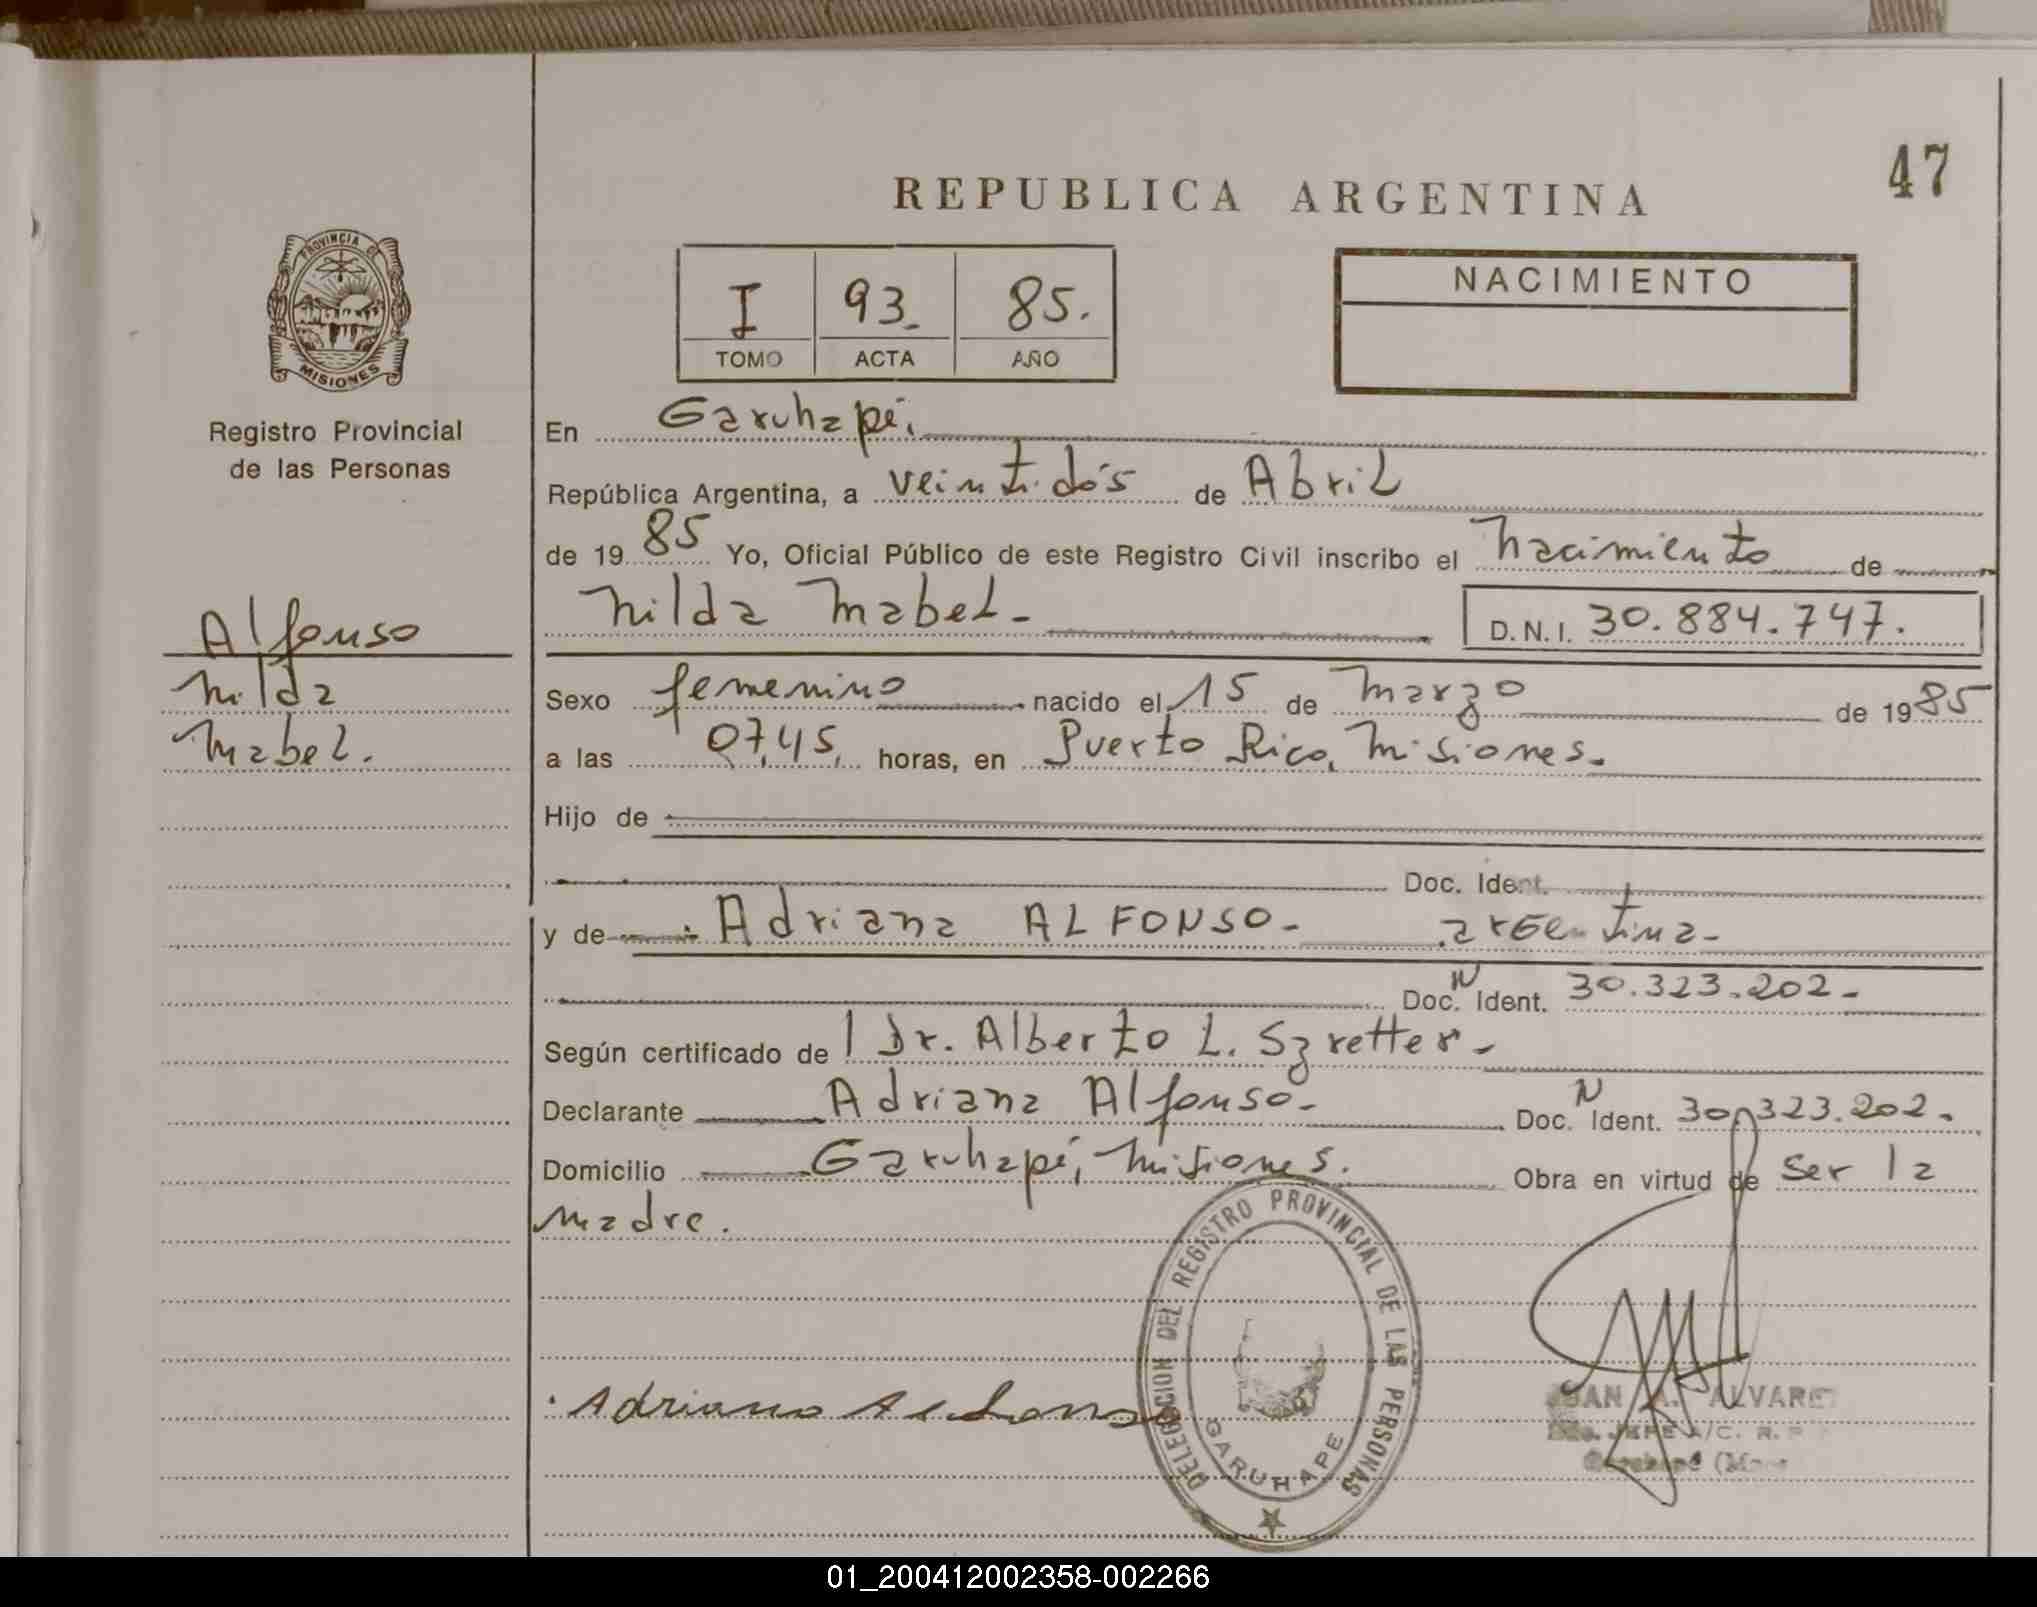 47
REPUBLICA ARGENTINA
PROVINCIA DE
MISIONES
Registro Provincial
de las Personas
I 93. 85.
TOMO ACTA AÑO
NACIMIENTO
En Garuhapé,
República Argentina, a veintidós de Abril
de 1985 Yo, Oficial Público de este Registro Civil inscribo el nacimiento de
Nilda Mabel.- D.N.I. 30.884.747.
Alfonso
Nilda
Mabel.
Sexo femenino nacido el 15 de Marzo de 1985
a las 07,45, horas, en Puerto Rico, Misiones.
Hijo de
Doc. Ident.
y de Adriana ALFONSO- argentina-
Doc. N Ident. 30.323.202-
Según certificado de Dr. Alberto L. Szretter-
Declarante Adriana Alfonso- Doc. N Ident. 30.323.202.
Domicilio Garuhapé, Misiones. Obra en virtud de ser la
madre.
DELEGACION DEL REGISTRO PROVINCIAL DE LAS PERSONAS
GARUHAPE
Adriana Alfonso
JUAN A. ALVAREZ
JEFE A/C. R. P.
Garuhapé
01_200412002358-002266